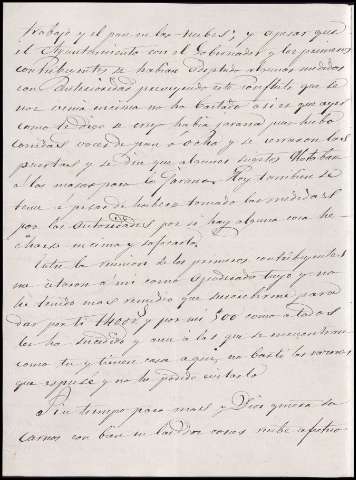 trabajo y el pan en las nubes; y apesar que
el Ayuntamiento con el Gobernador y los primeros
contribuyentes se habian adoptado algunas medidas
con anterioridad precaviendo este conflicto que se
nos venia encima no ha bastado asi es que ayer
como te digo se creyó habia jarana pues hubo
corridas voces de pan a ocho y se cerraron las
puertas y se dice que algunos sugetos
a las masas para la Hoy tambien se
teme a pesar de haberse tomado las medidas
por las autoridades por si hay alguna cosa he-
charse encima y sofocarla.
Entre la reunion de los primeros contribuyentes
me citaron a mi como apoderado tuyo y no
he tenido mas remedio que suscribirme para
dar por ti 1400 y por mi 500 como a todos
les ha sucedido y aun a los que se encuentran
como tu y tienen casa aqui, no bastó las razones
que espuse y no he podido evitarlo
Sin tiempo para mas y Dios quiera sa-
carnos con bien de cosas recibe afectuo-